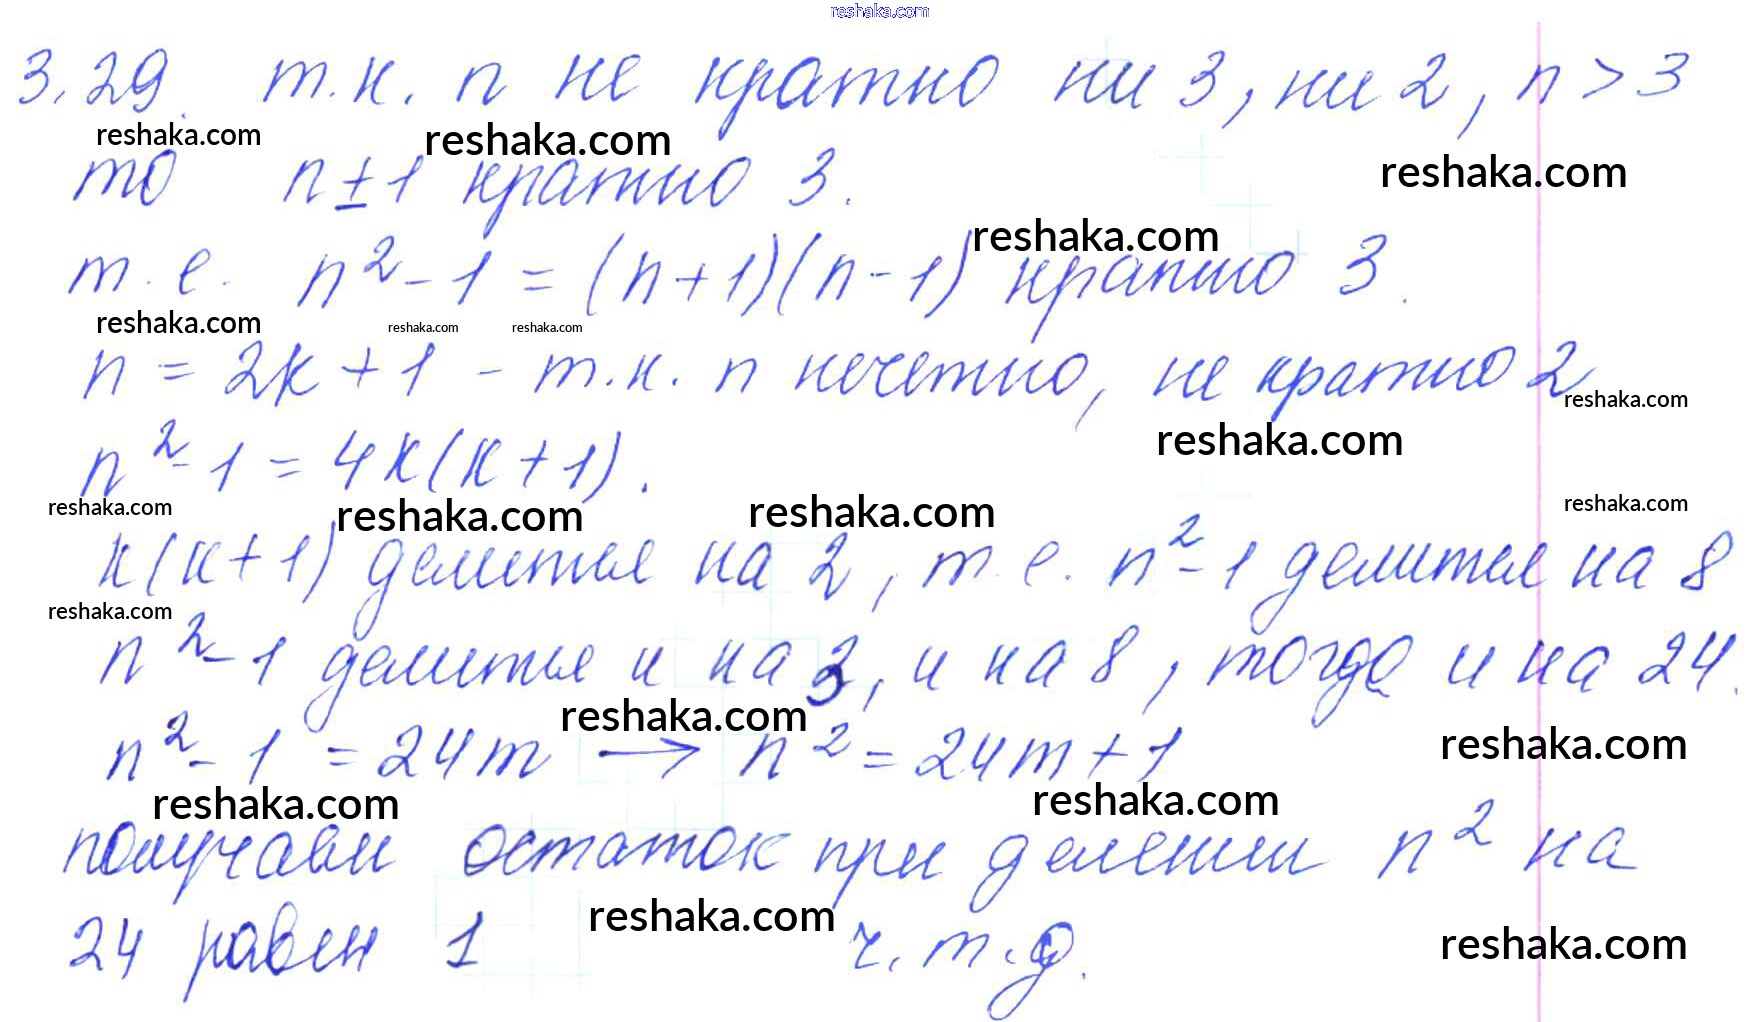 reshaka.com
3.29. т.к. n не кратно ни 3, ни 2, n > 3
reshaka.com reshaka.com
то n ± 1 кратно 3.
reshaka.com
reshaka.com
т.е. n² - 1 = (n + 1)(n - 1) кратно 3.
reshaka.com reshaka.com reshaka.com
n = 2k + 1 - т.к. n нечетно, не кратно 2
reshaka.com
reshaka.com
n² - 1 = 4k(k + 1).
reshaka.com reshaka.com reshaka.com reshaka.com
k(k + 1) делится на 2, т.е. n² - 1 делится на 8
reshaka.com
n² - 1 делится и на 3, и на 8, тогда и на 24.
reshaka.com
n² - 1 = 24m → n² = 24m + 1
reshaka.com
reshaka.com reshaka.com
получаем остаток при делении n² на
reshaka.com
24 равен 1 ч.т.д.
reshaka.com